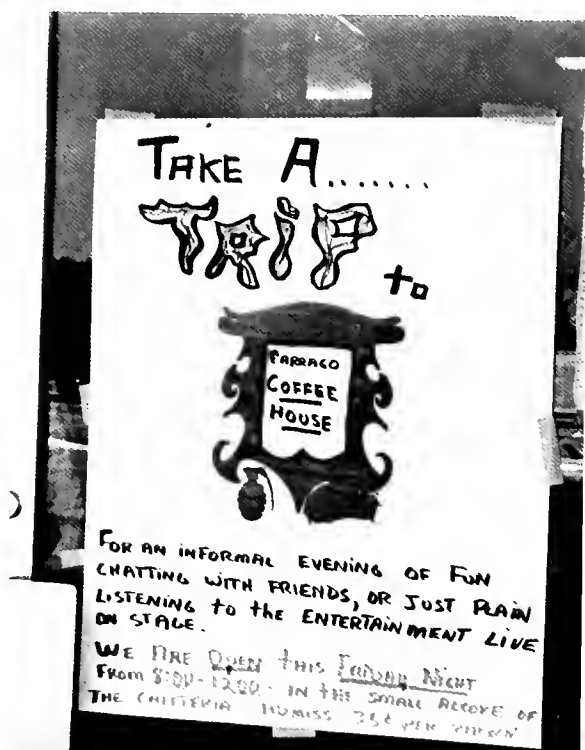 TAKE A.......
TRIP to
FARRAGO
COFFEE
HOUSE
FOR AN INFORMAL EVENING OF FUN
CHATTING WITH FRIENDS, OR JUST PLAIN
LISTENING to the ENTERTAINMENT LIVE
ON STAGE.
WE ARE OPEN tHIS FRIDAY NIGHT
FROM 8:00-12:00 - IN tHE SMALL ALCOVE OF
THE CAFETERIA 35¢ PER